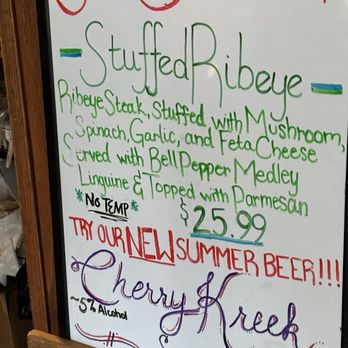 Stuffed Ribeye
Ribeye Steak, Stuffed with Mushroom,
Spinach, Garlic, and Feta Cheese
Served with Bell Pepper Medley
Linguine & Topped with Parmesan
*No Temp*
$25.99
TRY OUR NEW SUMMER BEER!!!
Cherry Kreek
~5% Alcohol